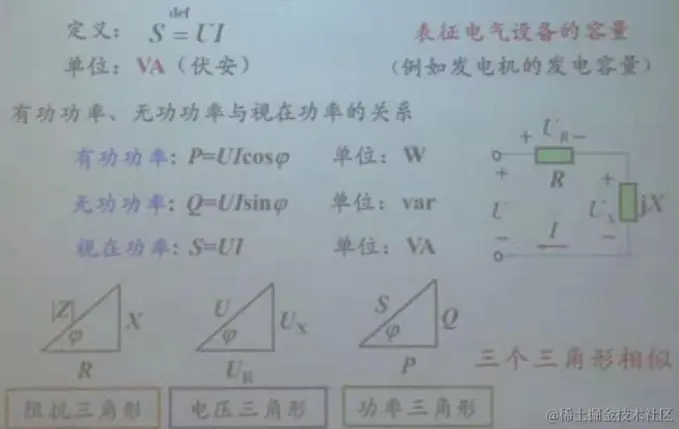 定义: S def= UI 表征电气设备的容量
单位: VA (伏安) (例如发电机的发电容量)
有功功率、无功功率与视在功率的关系
有功功率: P=UIcosφ 单位: W
无功功率: Q=UIsinφ 单位: var
视在功率: S=UI 单位: VA
+ U_R −
R
+ U −
+ U_X −
jX
I
|Z| φ X R
U φ U_X U_R
S φ Q P
三个三角形相似
阻抗三角形 电压三角形 功率三角形
@稀土掘金技术社区